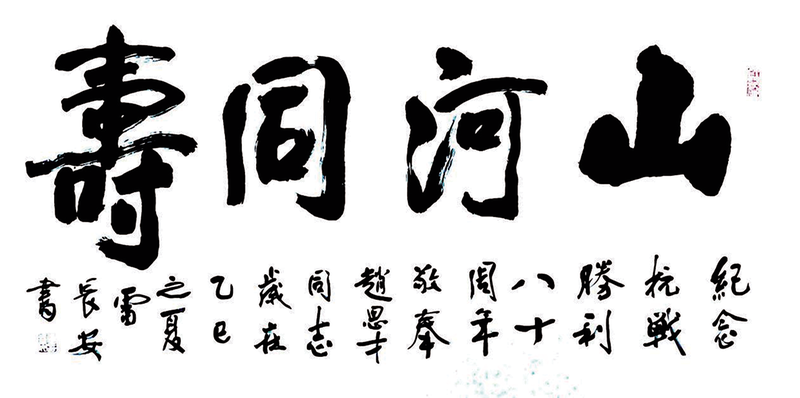 山河同壽
紀念
抗戦
勝利
八十
周年
敬奉
趙恩才
同志
歲在
乙巳
之夏
雷
長安
書